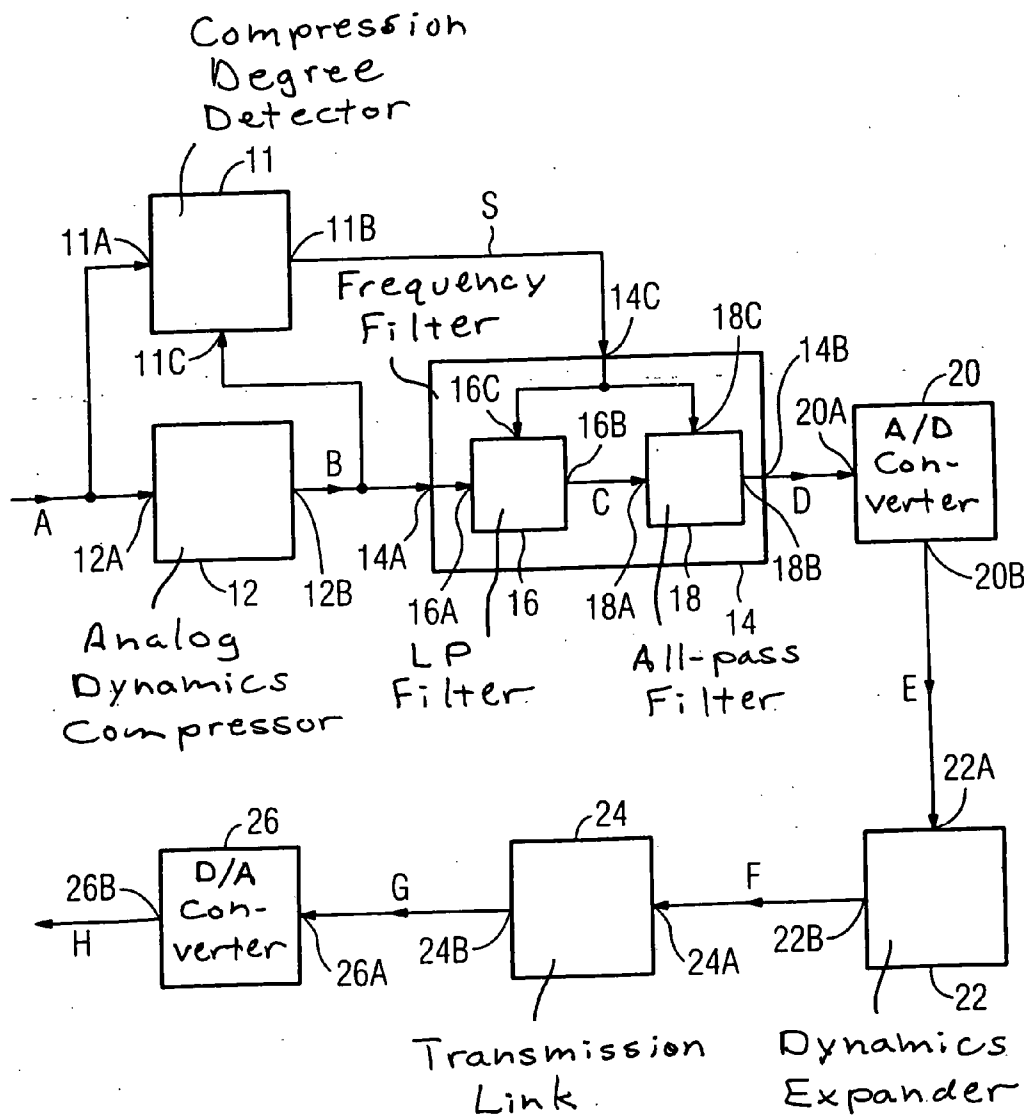 Compression
Degree
Detector
11
11A
11B
S
Frequency
Filter
14C
18C
14B
11C
16C
16B
20A
20
A/D
Con-
verter
B
C
D
A
12A
12
12B
14A
16A
16
18A
18
14
18B
20B
Analog
Dynamics
Compressor
LP
Filter
All-pass
Filter
E
22A
26
24
D/A
Con-
verter
26B
G
F
H
26A
24B
24A
22B
22
Transmission
Link
Dynamics
Expander